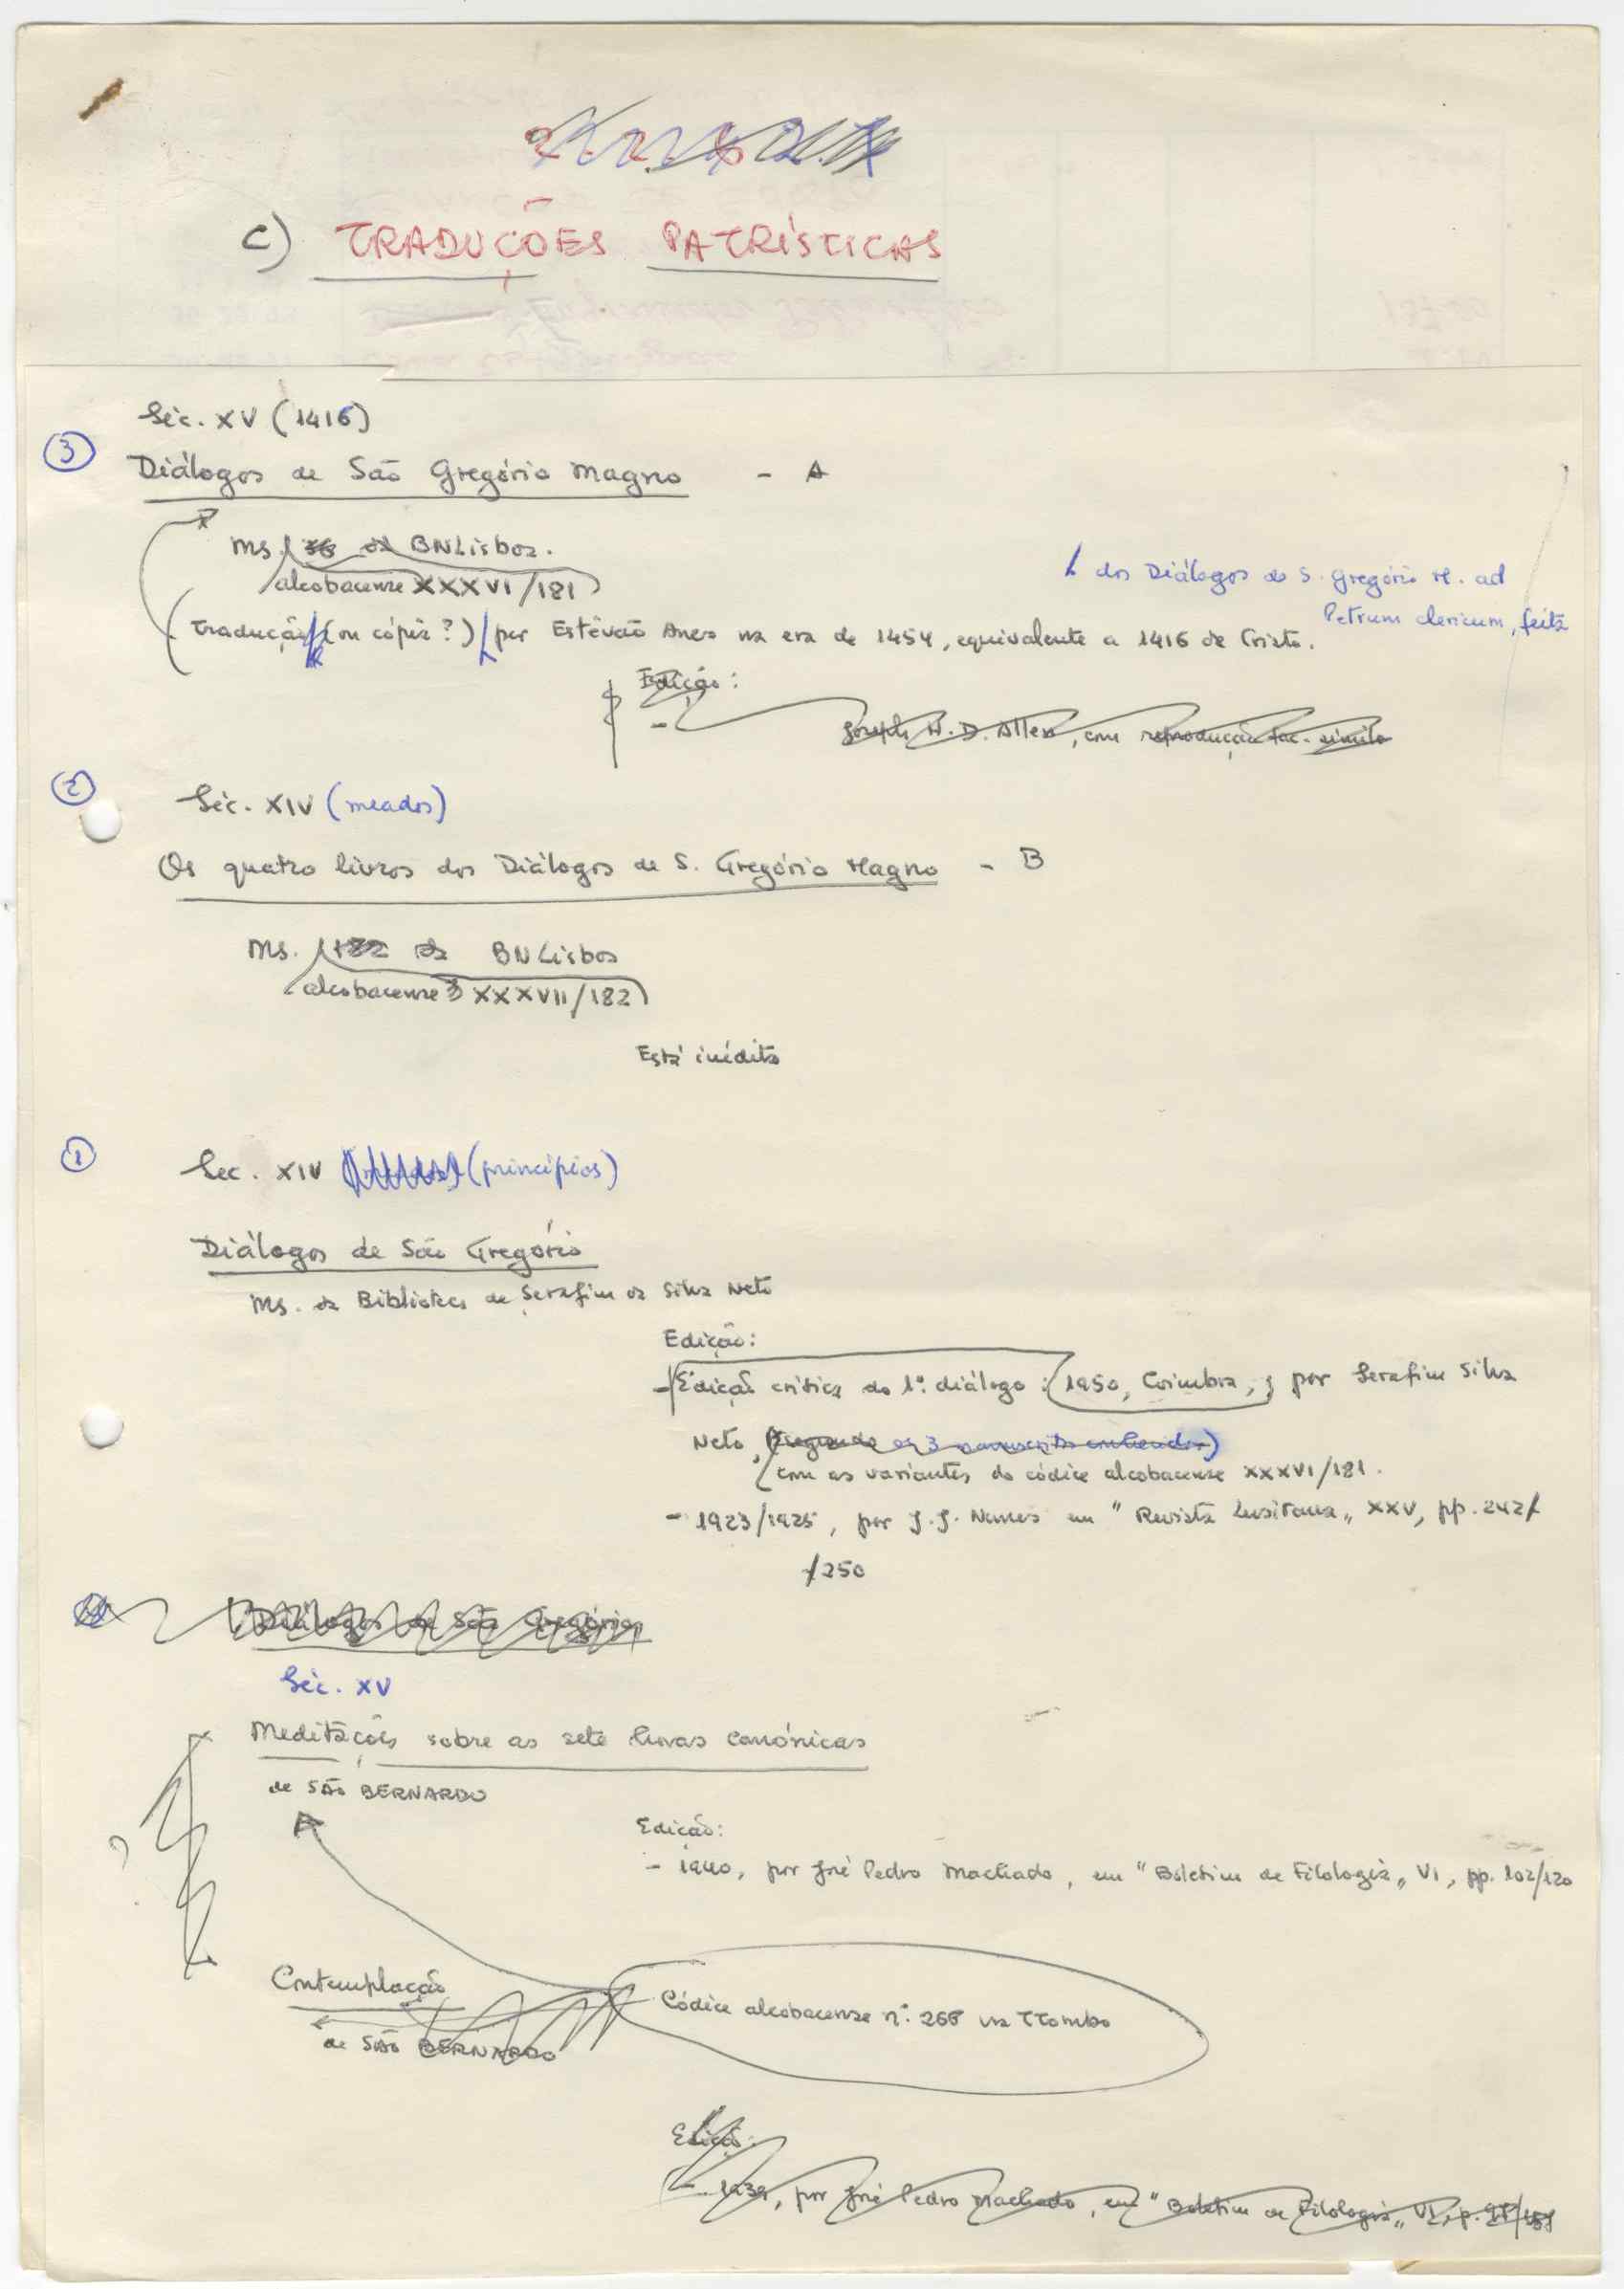 c) TRADUÇÕES PATRÍSTICAS
Séc. XV (1416)
3
Diálogos de São Gregório Magno - A
Ms. 36 da BNLisboa.
alcobacense XXXVI/181
dos Diálogos de S. Gregório M. ad
Petrum clericum, feita
(Tradução (ou cópia?) por Estêvão Anes na era de 1454, equivalente a 1416 de Cristo.
Edição:
- Joseph H. D. Allen, com reprodução fac-simile
2
Séc. XIV (meados)
Os quatro livros dos Diálogos de S. Gregório Magno - B
Ms. 182 da BNLisboa
alcobacense XXXVII/182
Está inédito
1
Sec. XIV (princípios)
Diálogos de São Gregório
Ms. da Biblioteca de Serafim da Silva Neto
Edição:
- Edição crítica do 1º diálogo: (1950, Coimbra, ; por Serafim Silva
Neto, (segundo os 3 manuscritos conhecidos)
com as variantes do códice alcobacense XXXVI/181.
- 1923/1925, por J.J. Nunes em "Revista Lusitana", XXV, pp. 242/
/250
Diálogos de São Gregório
Séc. XV
Meditações sobre as sete horas canónicas
de SÃO BERNARDO
Edição:
- 1940, por José Pedro Machado, em "Boletim de Filologia", VI, pp. 102/120
Contemplação
de SÃO BERNARDO
Códice alcobacense nº 266 na TTombo
Edição:
- 1939, por José Pedro Machado, em "Boletim de Filologia", VI, p.